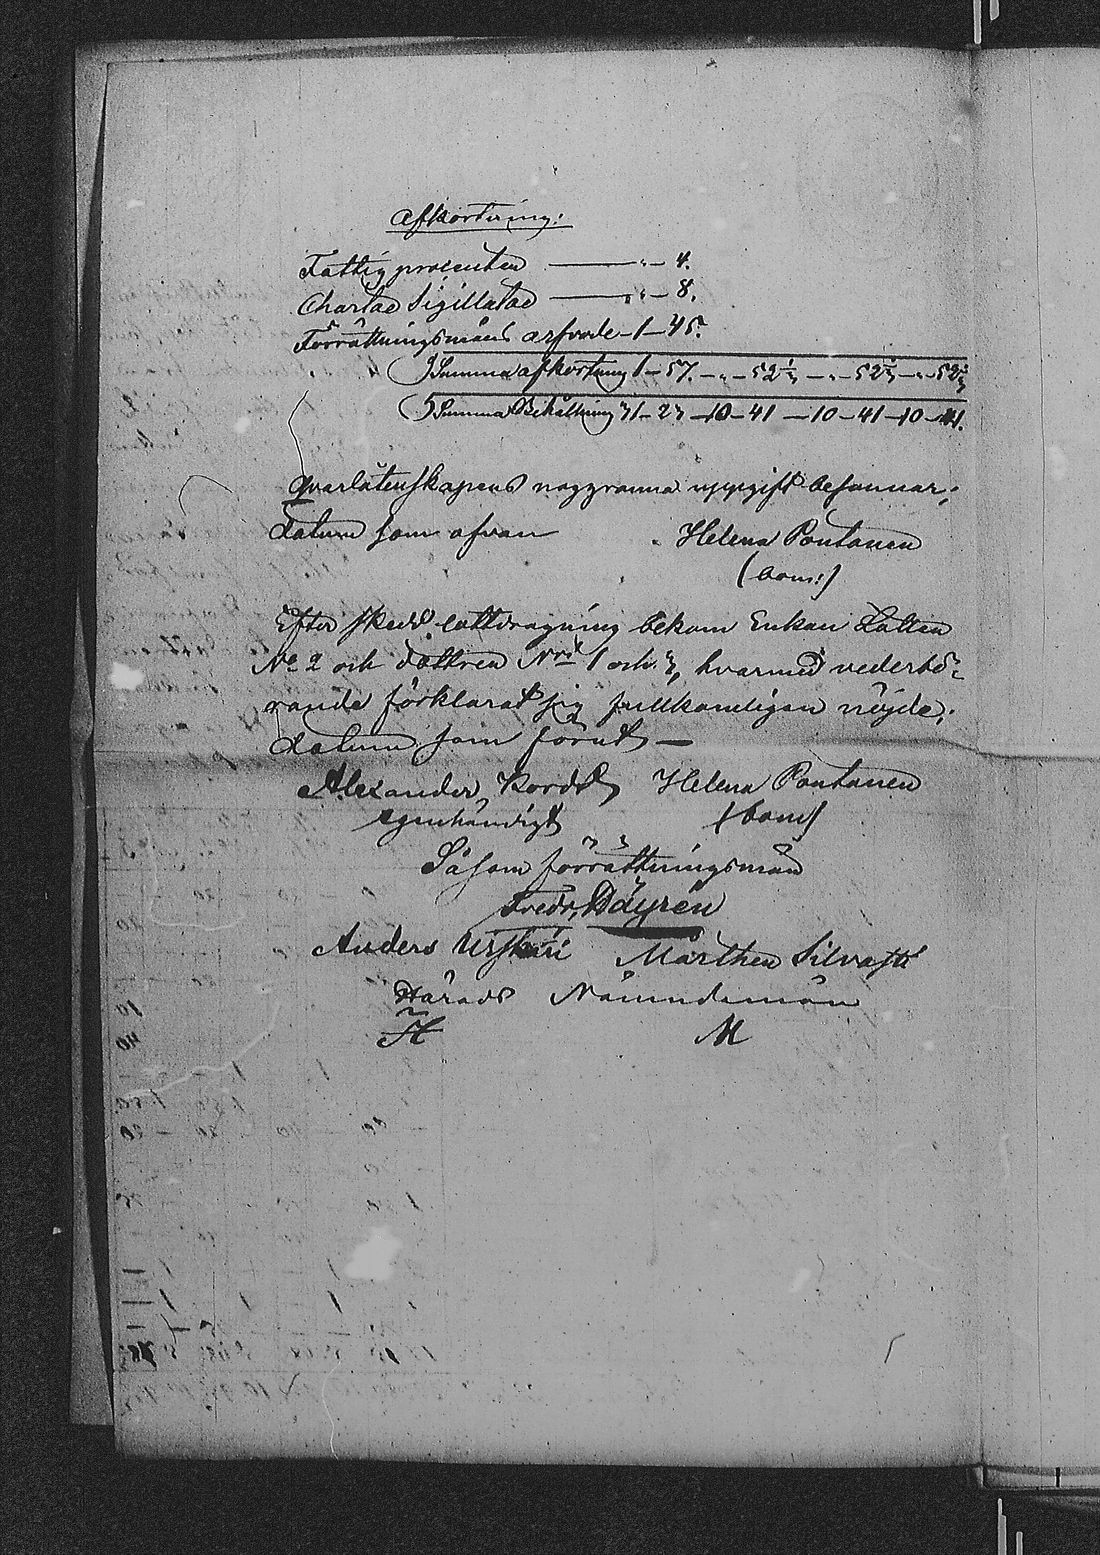 Afkortning:
Fattigprocenten — " — 4.
Chartae Sigillatae — " — 8.
Förrättningsmäns arfvode — 1 — 45.
Summa afkortning 1 — 57. — " — 52 1/3 — " — 52 1/3 — " — 52 1/3
Summa Behållning 31 — 23 — 10 — 41 — 10 — 41 — 10 — 41.
Qvarlåtenskapens noggranna uppgift besannar;
datum som ofvan Helena Pontanen
(bom:)
Efter skedd lottdragning bekom Enkan Lotten
No 2 och dottren Nris 1 och 3, hvarmed vederbö-
rande förklarat sig fullkomligen nöjde;
datum som förut —
Alexander Kordt Helena Pontanen
egenhändigt (bom)
Såsom förrättningsmän
Fredr.
Anders Mårthen Silvasti
Härads Nämndemän
H M